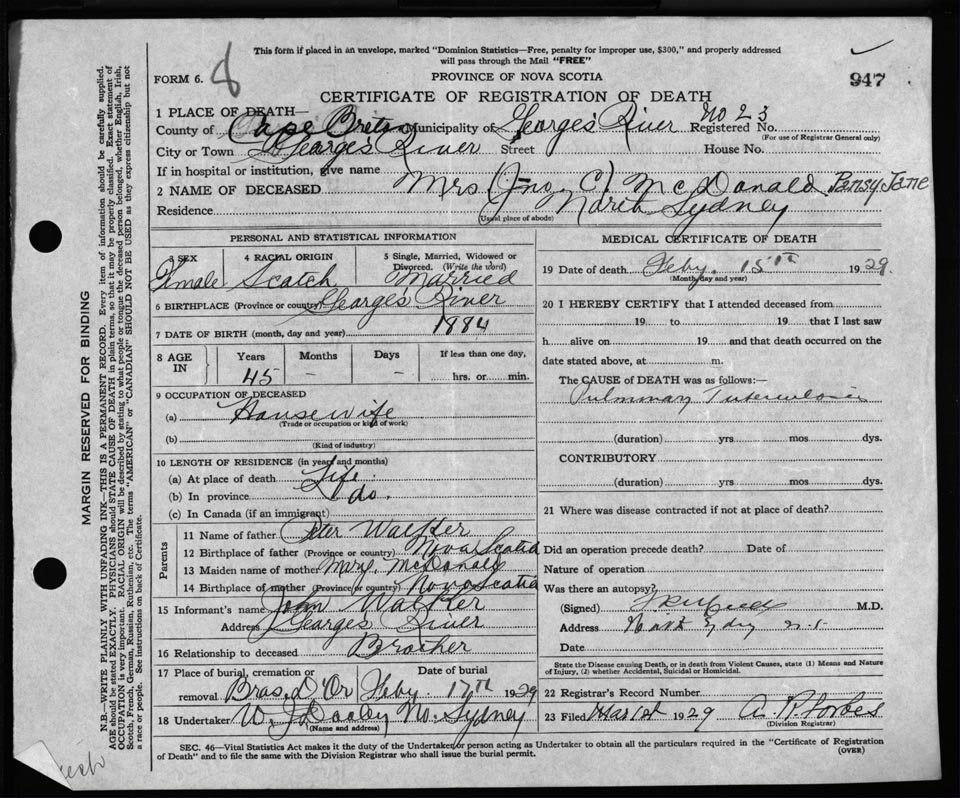 This form if placed in an envelope, marked "Dominion Statistics—Free, penalty for improper use, $300," and properly addressed
will pass through the Mail "FREE"
FORM 6. 8
PROVINCE OF NOVA SCOTIA
947
CERTIFICATE OF REGISTRATION OF DEATH
1 PLACE OF DEATH—
County of Cape Breton Municipality of Georges River Registered No. No 23
(For use of Registrar General only)
City or Town Georges River Street House No.
If in hospital or institution, give name
2 NAME OF DECEASED Mrs (Jno. C) McDonald Pansy Jane
Residence North Sydney
(Usual place of abode)
PERSONAL AND STATISTICAL INFORMATION
3 SEX 4 RACIAL ORIGIN 5 Single, Married, Widowed or
Divorced. (Write the word)
Female Scotch Married
6 BIRTHPLACE (Province or country) Georges River
7 DATE OF BIRTH (month, day and year) 1884
8 AGE IN Years Months Days If less than one day,
45 – – hrs. or min.
9 OCCUPATION OF DECEASED
(a) Housewife
(Trade or occupation or kind of work)
(b)
(Kind of industry)
10 LENGTH OF RESIDENCE (in years and months)
(a) At place of death Life
(b) In province do.
(c) In Canada (if an immigrant)
Parents
11 Name of father Peter Walker
12 Birthplace of father (Province or country) Nova Scotia
13 Maiden name of mother Mary McDonald
14 Birthplace of mother (Province or country) Nova Scotia
15 Informant's name John Walker
Address Georges River
16 Relationship to deceased Brother
17 Place of burial, cremation or Date of burial
removal Bras d'Or Feby. 17th 1929
18 Undertaker W J Dooley No. Sydney
(Name and address)
MEDICAL CERTIFICATE OF DEATH
19 Date of death Feby. 15th 1929.
(Month, day and year)
20 I HEREBY CERTIFY that I attended deceased from
19 to 19 that I last saw
h alive on 19 and that death occurred on the
date stated above, at m.
The CAUSE of DEATH was as follows:—
Pulmonary Tuberculosis
(duration) yrs. mos. dys.
CONTRIBUTORY
(duration) yrs. mos. dys.
21 Where was disease contracted if not at place of death?
Did an operation precede death? Date of
Nature of operation
Was there an autopsy?
(Signed) M.D.
Address North Sydney N.S.
Date
State the Disease causing Death, or in death from Violent Causes, state (1) Means and Nature
of Injury, (2) whether Accidental, Suicidal or Homicidal.
22 Registrar's Record Number
23 Filed 1929 A. R. Forbes
(Division Registrar)
SEC. 46—Vital Statistics Act makes it the duty of the Undertaker or person acting as Undertaker to obtain all the particulars required in the "Certificate of Registration
of Death" and to file the same with the Division Registrar who shall issue the burial permit. (OVER)
MARGIN RESERVED FOR BINDING
N.B.—WRITE PLAINLY WITH UNFADING INK—THIS IS A PERMANENT RECORD. Every item of information should be carefully supplied.
AGE should be stated EXACTLY. PHYSICIANS should STATE CAUSE OF DEATH in plain terms, so that it may be properly classified. Exact statement of
OCCUPATION is very important. RACIAL ORIGIN will be described by stating to what people or tongue the deceased person belonged, whether English, Irish,
Scotch, French, German, Russian, Ruthenian, etc. The terms "AMERICAN" or "CANADIAN" SHOULD NOT BE USED as they express citizenship but not
a race or people. See instructions on back of Certificate.